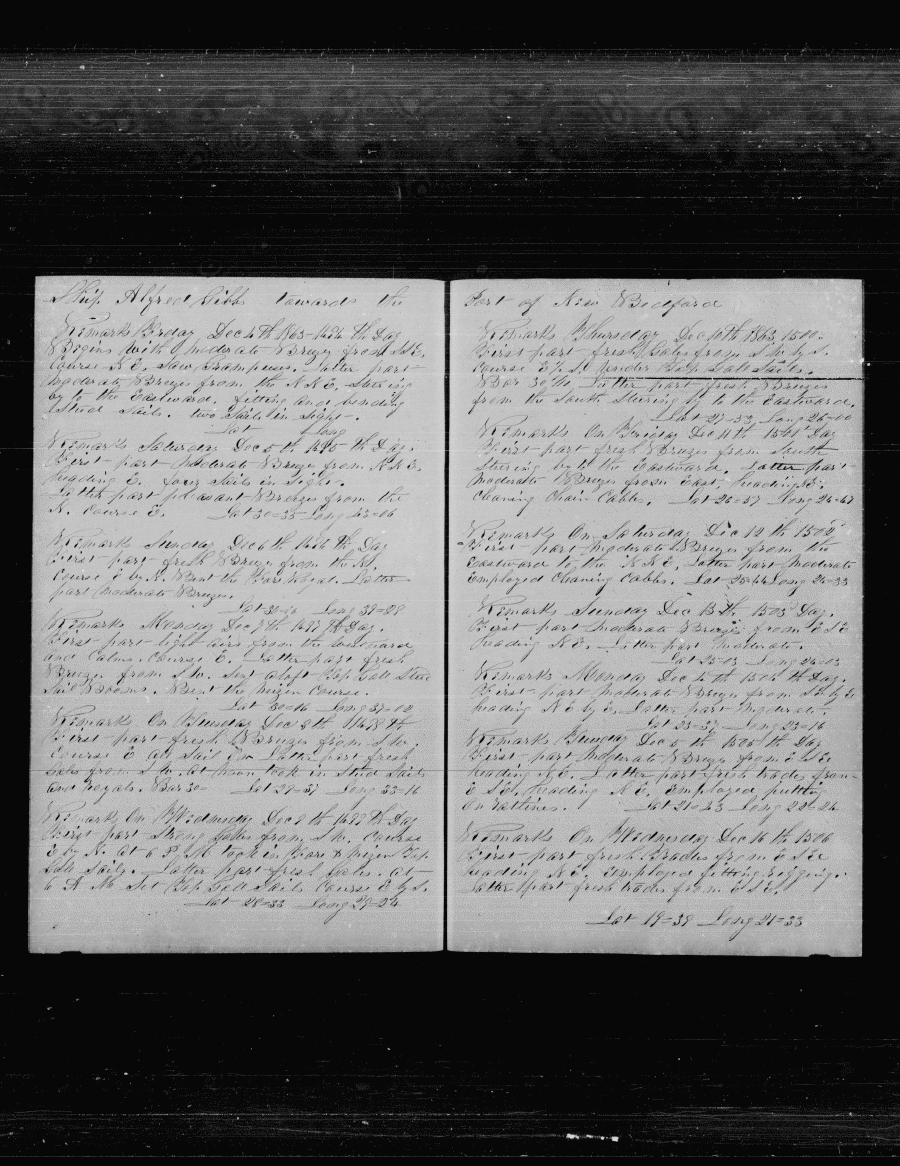 Ship Alfred Gibbs towards the
Remarks Friday Dec 4th 1863 - 1494th Day
Begins with moderate Breezes from S.E.
Course N.E. Saw Grampuses. Latter part
moderate Breezes from the N.N.E. Stearing
by to the Eastward. fitting and bending
Stud Sails. two Sails in Sight.
Lat Long
Remarks Saturday Dec 5th 1495th Day.
First part moderate Breezes from N.N.E.
heading E. four Sails in Sight.
Latter part pleasant Breezes from the
N. Course E. Lat 30=35 Long 43=06
Remarks Sunday Dec 6th 1496th Day
First part fresh Breezes from the N.
Course E by N. Bent the Fore Royal. Latter
part moderate Breezes.
Lat 30= Long 39=28
Remarks Monday Dec 7th 1497th Day.
First part light airs from the westward
and Calms. Course E. Latter part fresh
Breezes from S.W. Sent aloft Top Gall Stud
Sail Booms. Bent the mizen Course.
Lat 30=16 Long 37=02
Remarks On Tuesday Dec 8th 1498th
First part fresh Breezes from S.W.
Course E all Sail on Latter part fresh
Gales from S.W. at noon took in Stud Sails
and Royals. Bar 30= Lat 29=37 Long 33=16
Remarks On Wednesday Dec 9th 1499th Day
First part Strong gales from S.W. Course
E by N. At 6 P.M. took in Fore & Mizen Top
Gall Sails. Latter part fresh gales. at
6 A.M. Set Top Gall Sails Course E by S.
Lat 28=33 Long 29=24
Port of New Bedford
Remarks Thursday Dec 10th 1863 1500.
First part fresh Gales from S.W. by S.
Course E by S. under Top Gall Sails.
Bar 30/10 Latter part fresh Breezes
from the South Stearing by to the Eastward.
Lat 27=33 Long 26=00
Remarks On Friday Dec 11th 1501st Day
First part fresh Breezes from South
Stearing by to the Eastward. Latter part
moderate Breezes from East, heading
Cleaning Chain Cables. Lat 26=57 Long 24=47
Remarks On Saturday Dec 12th 1502
First part moderate Breezes from the
Eastward to the N.N.E. Latter part moderate
Employed Cleaning Cables. Lat 25=44 Long 24=33
Remarks Sunday Dec 13th, 1503 Day.
First part moderate Breezes from E S E
heading N.E. Latter part moderate.
Lat 25=03 Long 24=03
Remarks Monday Dec 14th 1504th Day.
First part moderate Breezes from S.E by E.
heading N E by E. Latter part moderate.
Lat 23=37 Long 23=16
Remarks Tuesday Dec 15th 1505th Day
First part moderate Breezes from E S E
heading N.E. Latter part fresh trades from
E S E, heading N E. Employed putting
on ratlines. Lat 21=43 Long 22=24
Remarks On Wednesday Dec 16th 1506
First part fresh Trades from E S E
heading N.E. Employed fitting rigging.
Latter part fresh trades from E S E.
Lat 19=39 Long 21=33